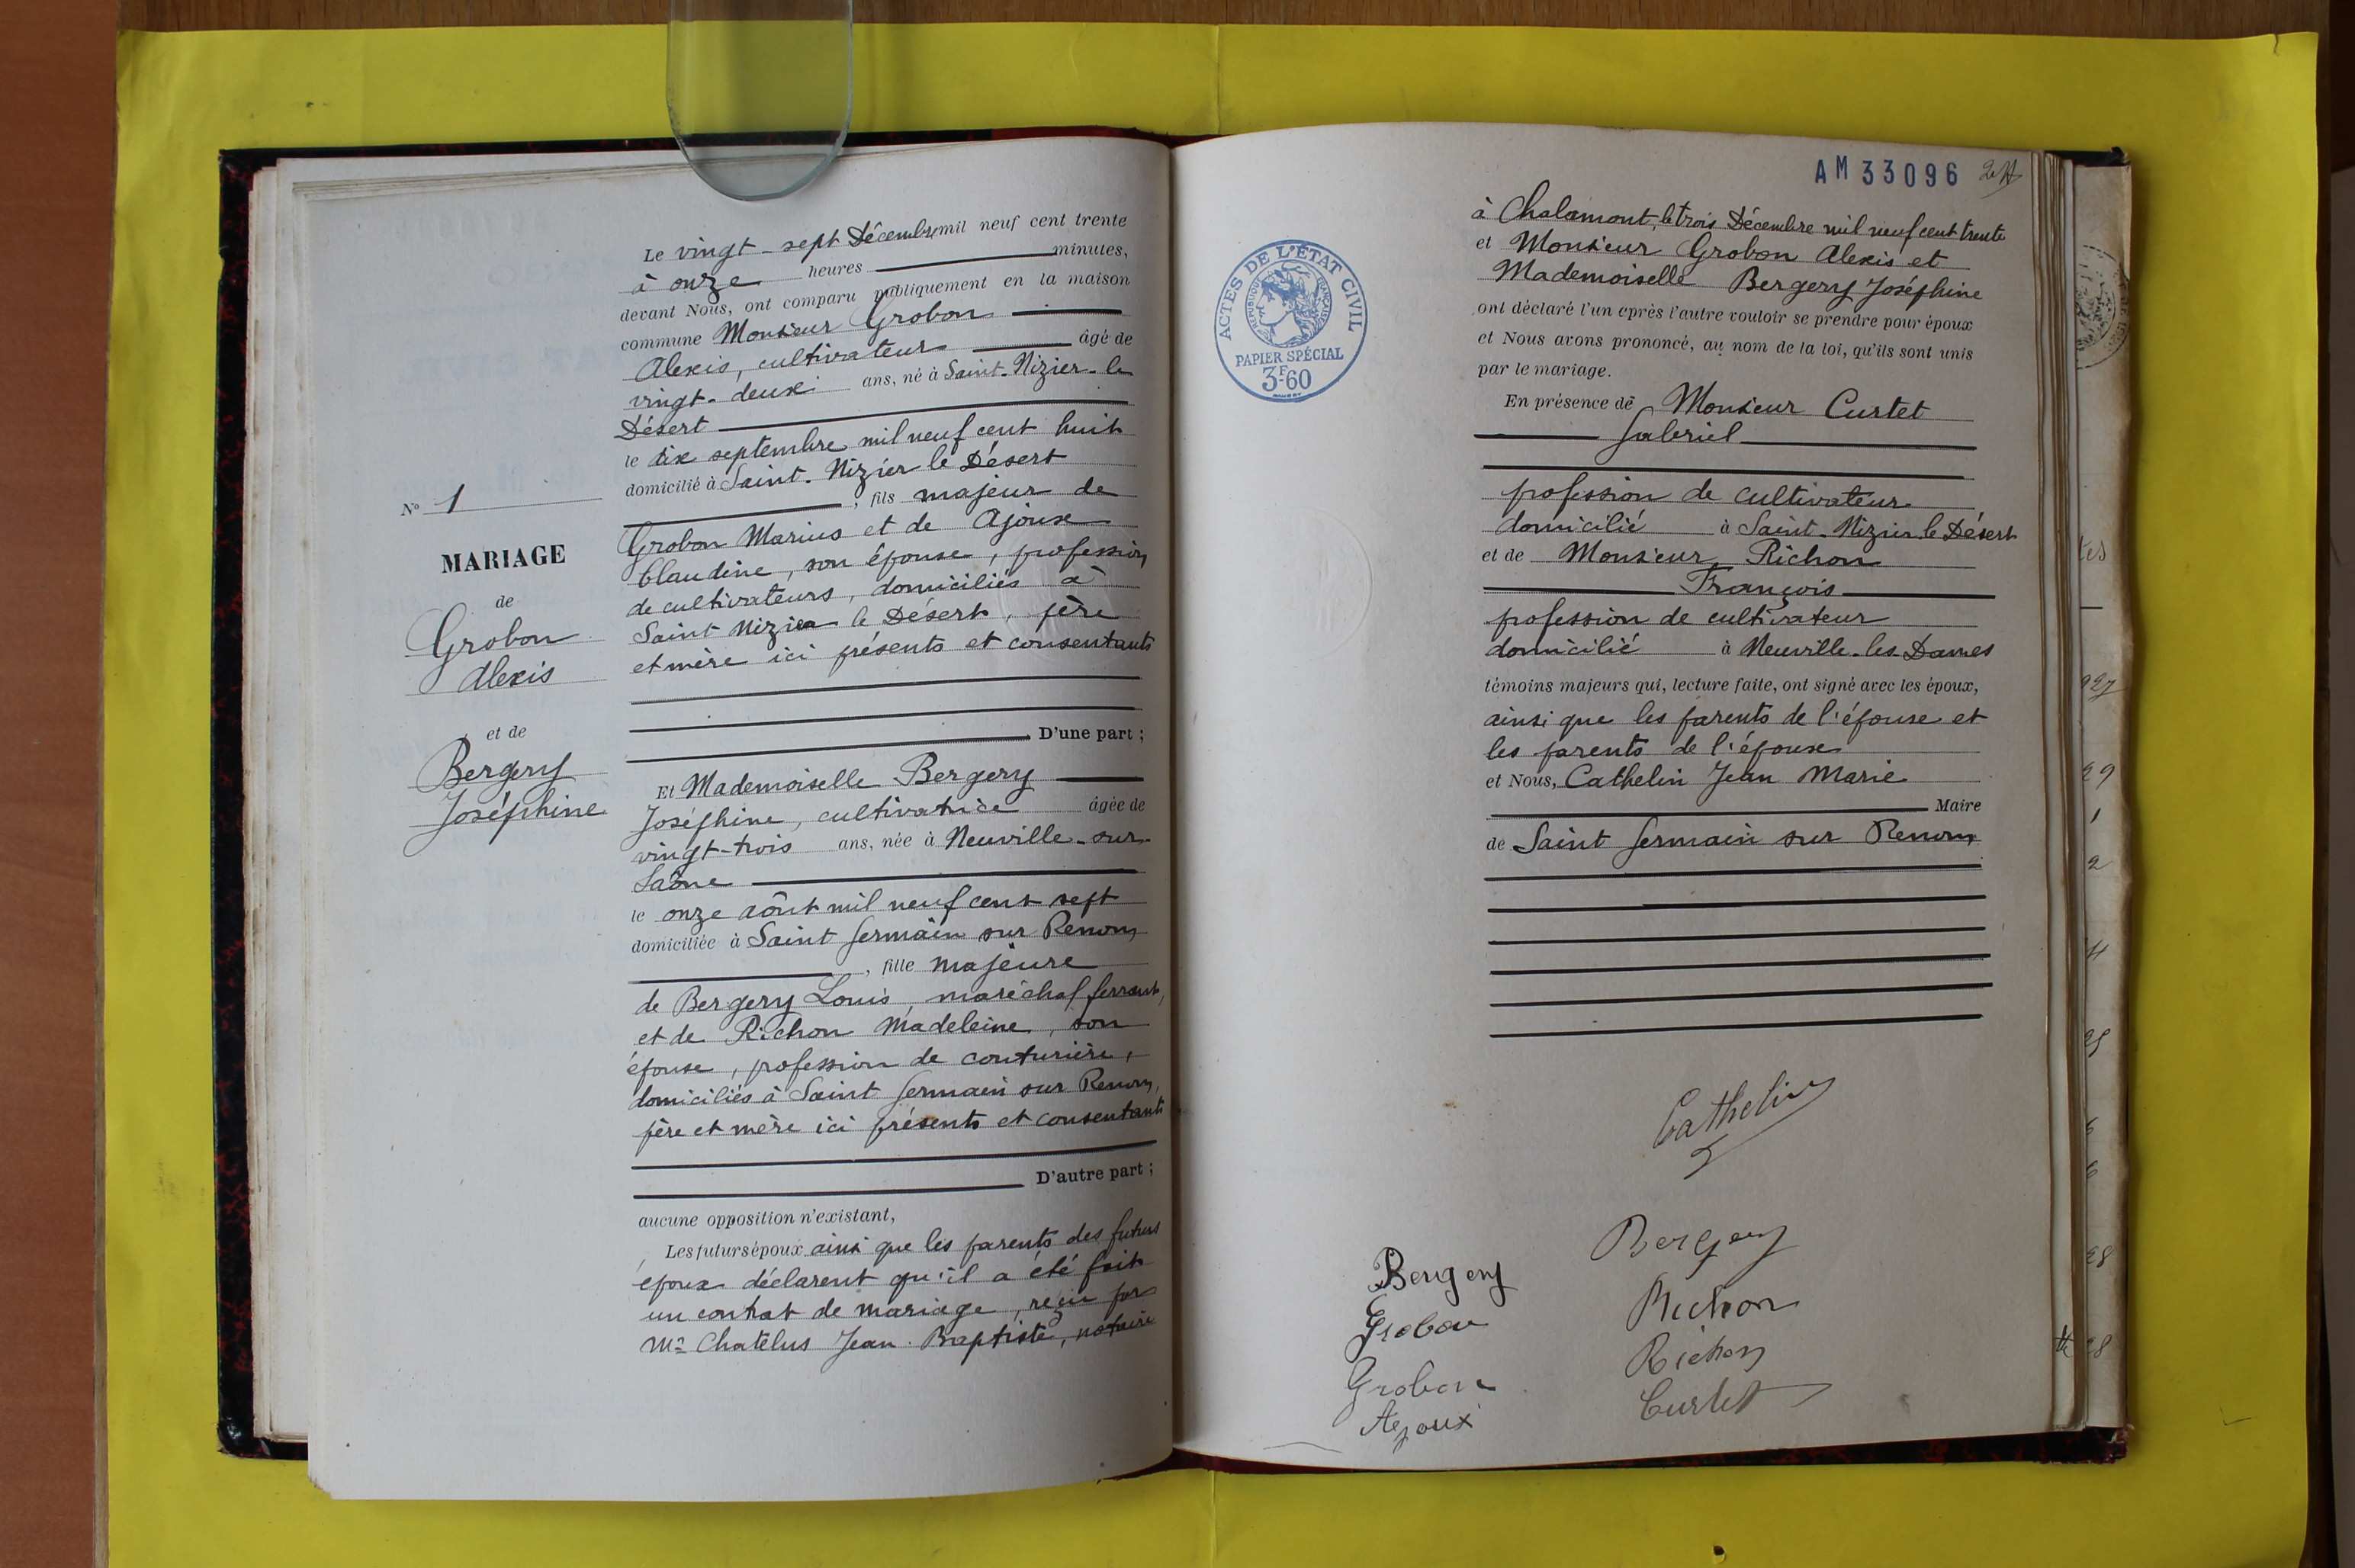 N° 1
MARIAGE
de
Grobon
Alexis
et de
Bergery
Joséphine
Le vingt-sept Décembre mil neuf cent trente
à onze heures minutes,
devant Nous, ont comparu publiquement en la maison
commune Monsieur Grobon
Alexis, cultivateur âgé de
vingt-deux ans, né à Saint-Nizier-le
Désert
le dix septembre mil neuf cent huit
domicilié à Saint-Nizier le Désert
, fils majeur de
Grobon Marius et de Ajoux
Claudine, son épouse, profession
de cultivateurs, domiciliés à
Saint Nizier le Désert, père
et mère ici présents et consentants
D'une part ;
Et Mademoiselle Bergery
Joséphine, cultivatrice âgée de
vingt-trois ans, née à Neuville-sur-
Saône
le onze août mil neuf cent sept
domiciliée à Saint Germain sur Renom
, fille majeure
de Bergery Louis, maréchal ferrant,
et de Richon Madeleine, son
épouse, profession de couturière,
domiciliés à Saint Germain sur Renom,
père et mère ici présents et consentants
D'autre part ;
aucune opposition n'existant,
Les futurs époux ainsi que les parents des futurs
époux déclarent qu'il a été fait
un contrat de mariage, reçu par
Me Chatelus Jean-Baptiste, notaire
AM 33096
à Chalamont, le trois Décembre mil neuf cent trente
et Monsieur Grobon Alexis et
Mademoiselle Bergery Joséphine
ont déclaré l'un après l'autre vouloir se prendre pour époux
et Nous avons prononcé, au nom de la loi, qu'ils sont unis
par le mariage.
En présence de Monsieur Curtet
Gabriel
profession de cultivateur
domicilié à Saint-Nizier le Désert
et de Monsieur Richon
François
profession de cultivateur
domicilié à Neuville-les-Dames
témoins majeurs qui, lecture faite, ont signé avec les époux,
ainsi que les parents de l'épouse et
les parents de l'épouse
et Nous, Cathelin Jean Marie
Maire
de Saint Germain sur Renom
ACTES DE L'ÉTAT CIVIL
RÉPUBLIQUE FRANÇAISE
PAPIER SPÉCIAL
3F-60
Cathelin
Bergery
Bergery
Richon
Grobon
Richon
Grobon
Curtet
Ajoux
tes
927
29
1
2
4
25
6
6
28
28